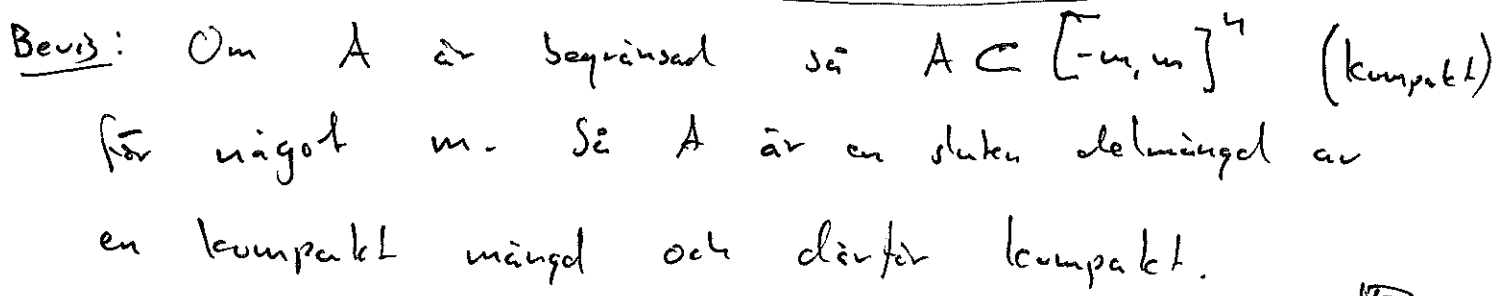 Bevis: Om A är begränsad så A ⊂ [-m, m]^n (kompakt)
för något m. Så A är en sluten delmängd av
en kompakt mängd och därför kompakt.